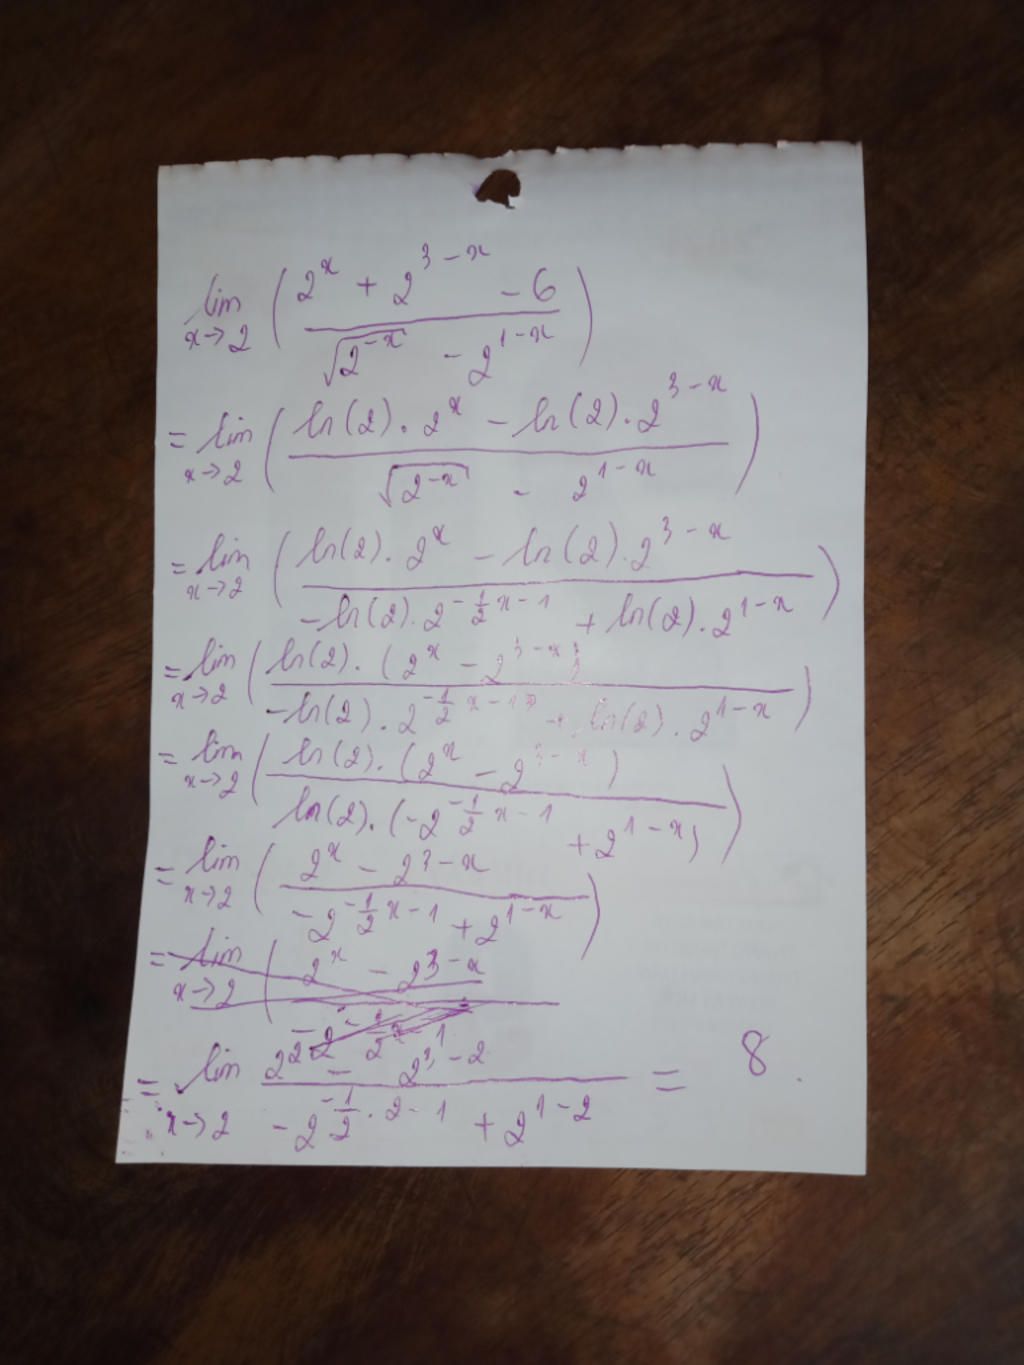 lim x→2 ( (2^x + 2^(3-x) - 6) / (√(2^(-x)) - 2^(1-x)) )
= lim x→2 ( (ln(2).2^x - ln(2).2^(3-x)) / (√(2^(-x)) - 2^(1-x)) )
= lim x→2 ( (ln(2).2^x - ln(2).2^(3-x)) / (-ln(2).2^(-1/2 x-1) + ln(2).2^(1-x)) )
= lim x→2 ( (ln(2).(2^x - 2^(3-x))) / (-ln(2).2^(-1/2 x-1) + ln(2).2^(1-x)) )
= lim x→2 ( (ln(2).(2^x - 2^(3-x))) / (ln(2).(-2^(-1/2 x-1) + 2^(1-x))) )
= lim x→2 ( (2^x - 2^(3-x)) / (-2^(-1/2 x-1) + 2^(1-x)) )
= lim x→2 ( (2^x - 2^(3-x)) / (-2^(-1/2 x-1)
= lim x→2 (2^2 - 2^(3-2)) / (-2^(-1/2.2-1) + 2^(1-2)) = 8.